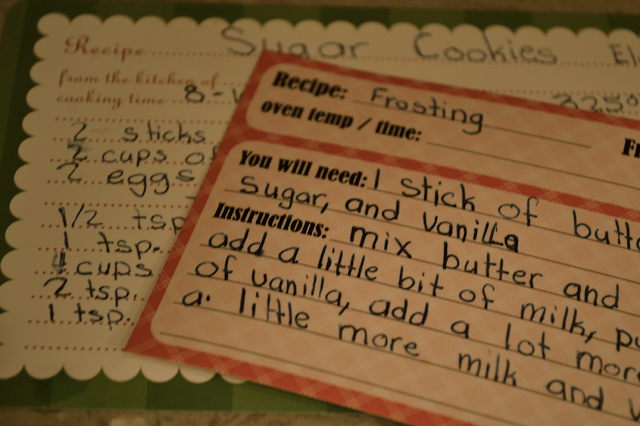 Recipe Sugar Cookies
from the kitchen of
cooking time 8- 325°
2 sticks
2 cups of
2 eggs
1/2 tsp
1 tsp.
4 cups
2 tsp.
1 tsp.
Recipe: Frosting
oven temp / time:
You will need: 1 stick of butt
Sugar, and Vanilla
Instructions: mix butter and
add a little bit of milk, pu
of vanilla, add a lot more
a little more milk and